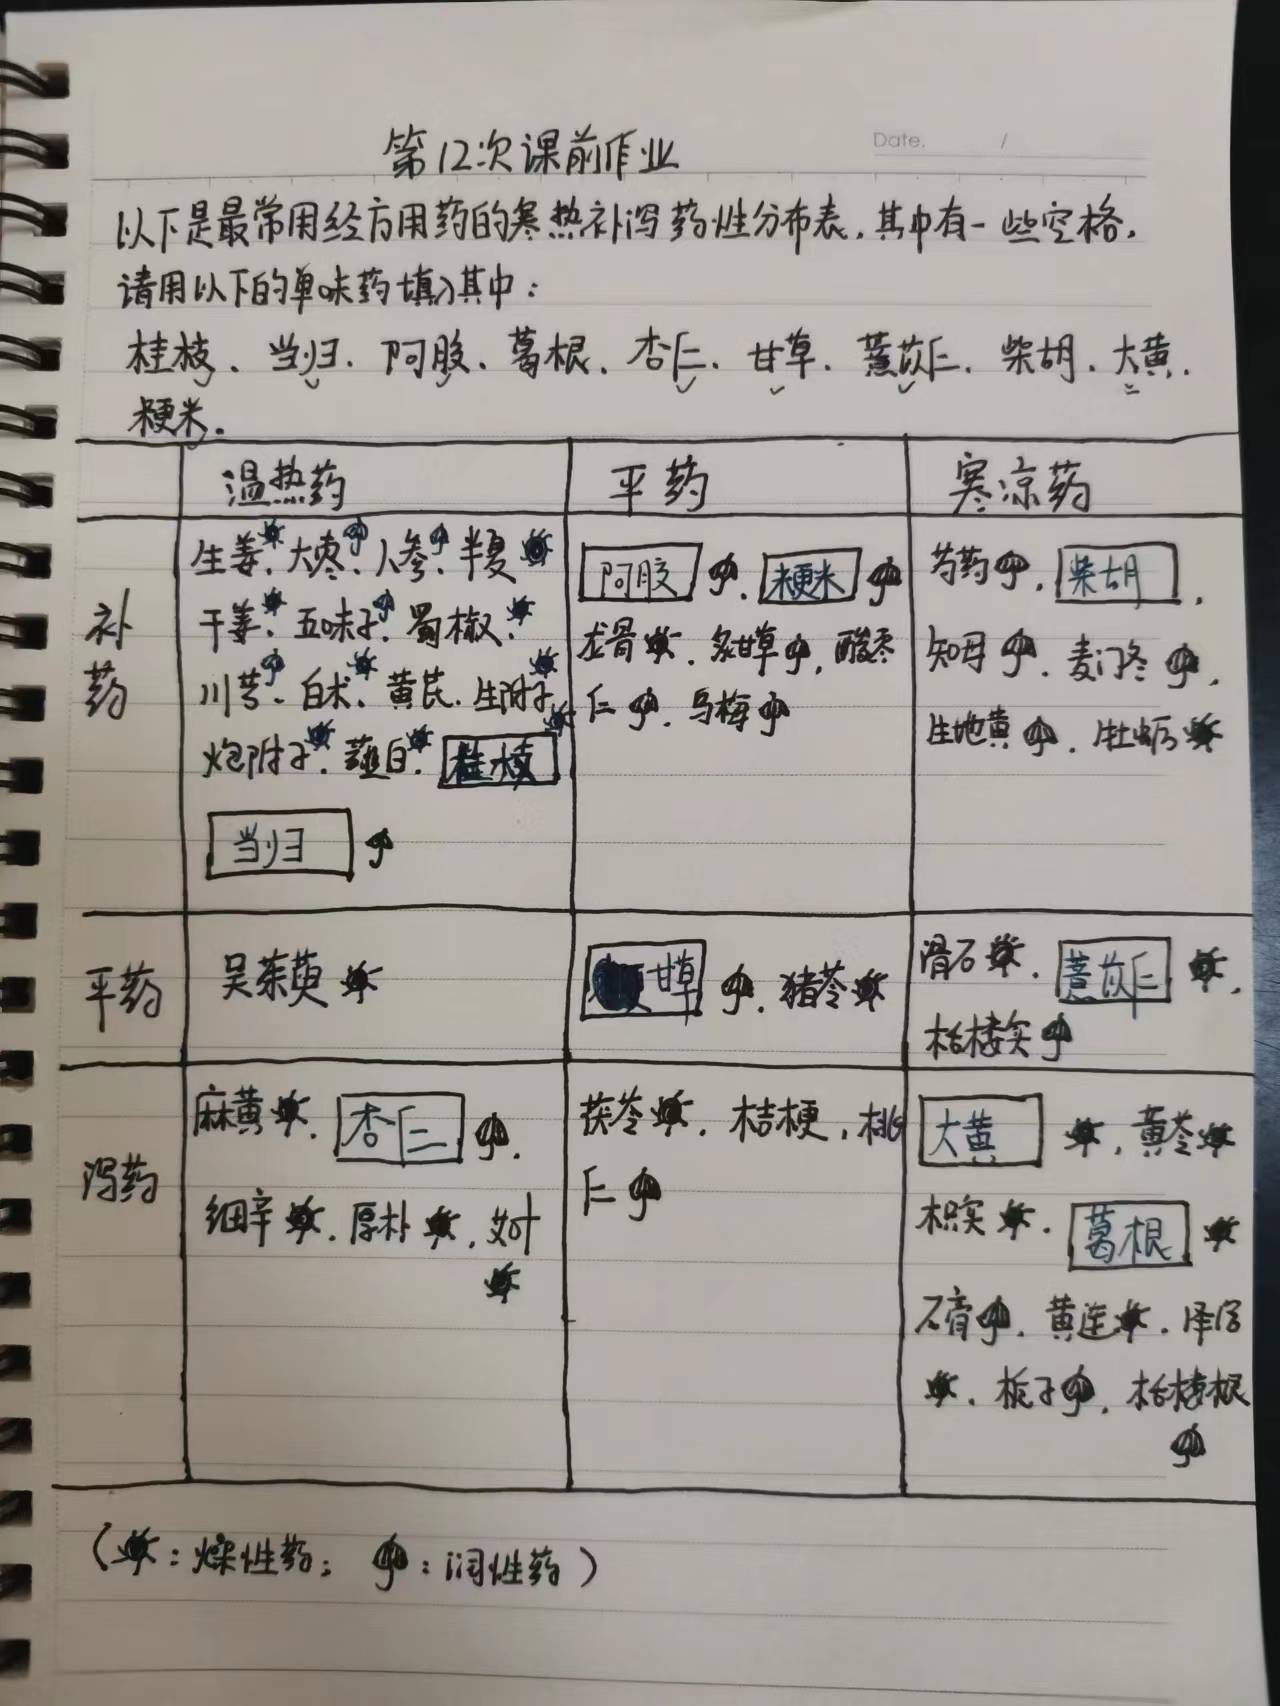 第12次课前作业
Date. /
以下是最常用经方用药的寒热补泻药性分布表,其中有一些空格,
请用以下的单味药填入其中:
桂枝、当归、阿胶、葛根、杏仁、甘草、薏苡仁、柴胡、大黄、
粳米.
温热药 平药 寒凉药
补药
生姜、大枣、人参、半夏
干姜、五味子、蜀椒、
川芎、白术、黄芪、生附子
炮附子、薤白、桂枝
当归
阿胶、粳米
龙骨、炙甘草、酸枣
仁、乌梅
芍药、柴胡、
知母、麦门冬、
生地黄、牡蛎
平药
吴茱萸
甘草、猪苓
滑石、薏苡仁、
栝楼实
泻药
麻黄、杏仁、
细辛、厚朴、艾叶
茯苓、桔梗、桃
仁
大黄、黄芩
枳实、葛根
石膏、黄连、泽泻
、栀子、栝楼根
(:燥性药; :润性药)